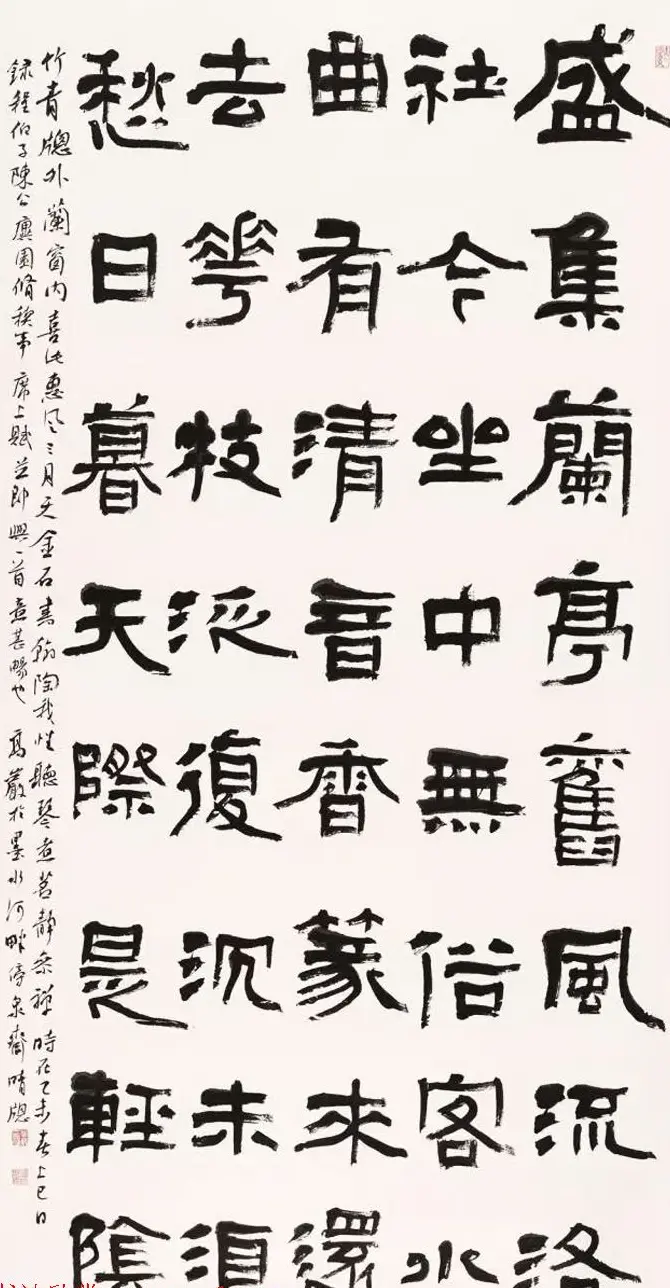 盛集蘭亭舊風流洛
社今坐中無俗客水
曲有清音香篆來還
去花枝泛復沉未須
愁日暮天際是輕陰
竹青牕外蘭窗内喜沐惠風三月天金石書翰陶我性聽琴煮茗靜參禪 時在乙未春上巳日
録程伯子陳公廙園脩禊事席上賦並即興一首意甚暢也 高嚴於墨水河畔 泉齋晴牕